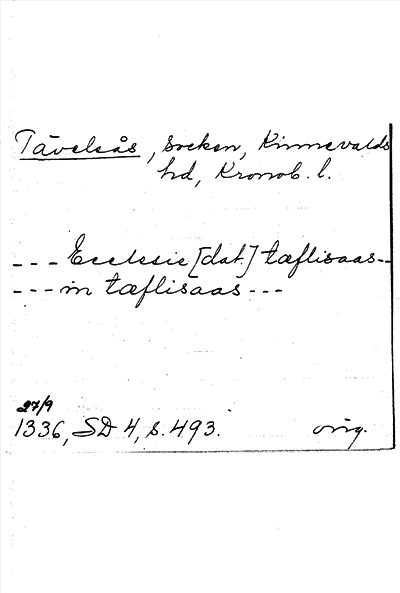 Tävelsås, socken, Kinnevalds
hd, Kronob. l.
--- Ecclesie [dat.] tæflisaas--
--- in tæflisaas ---
27/9
1336, SD 4, s. 493. orig.